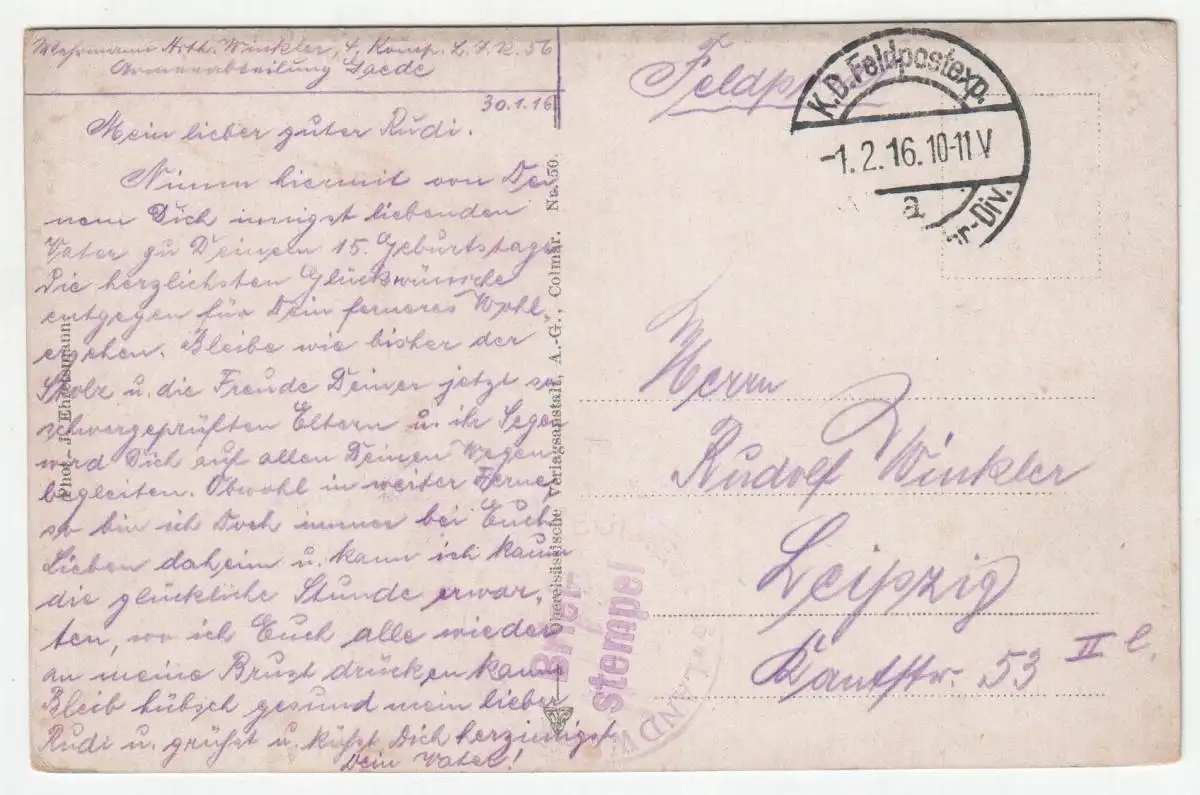 Wehrmann Arth. Winkler, 4. Komp. L. I. R. 56
Armeeabteilung Gaede
30.1.16
Mein lieber guter Rudi.
Nimm hiermit von Dei-
nem Dich innigst liebenden
Vater zu Deinem 15. Geburtstage
die herzlichsten Glückwünsche
entgegen für Dein ferneres Wohl-
ergehen. Bleibe wie bisher der
Stolz u. die Freude Deiner jetzt so
schwergeprüften Eltern u. ihr Segen
wird Dich auf allen Deinen Wegen
begleiten. Obwohl in weiter Ferne,
so bin ich Doch immer bei Euch
Lieben daheim u. kann ich kaum
die glückliche Stunde erwar-
ten, wo ich Euch alle wieder
an meine Brust drücken kann
Bleib hübsch gesund mein lieber
Rudi u. grüßt u. küßt Dich herzinnigst
Dein Vater!
Phot. J. Ehretsmann
Oberelsässische Verlagsanstalt, A.-G., Colmar. No. 50.
Feldp
K.D. Feldpostexp.
-1.2.16.10-11 V
a
r-Div.
Herrn
Rudolf Winkler
Leipzig
Kantstr. 53 II l.
Brief-
stempel
LAND